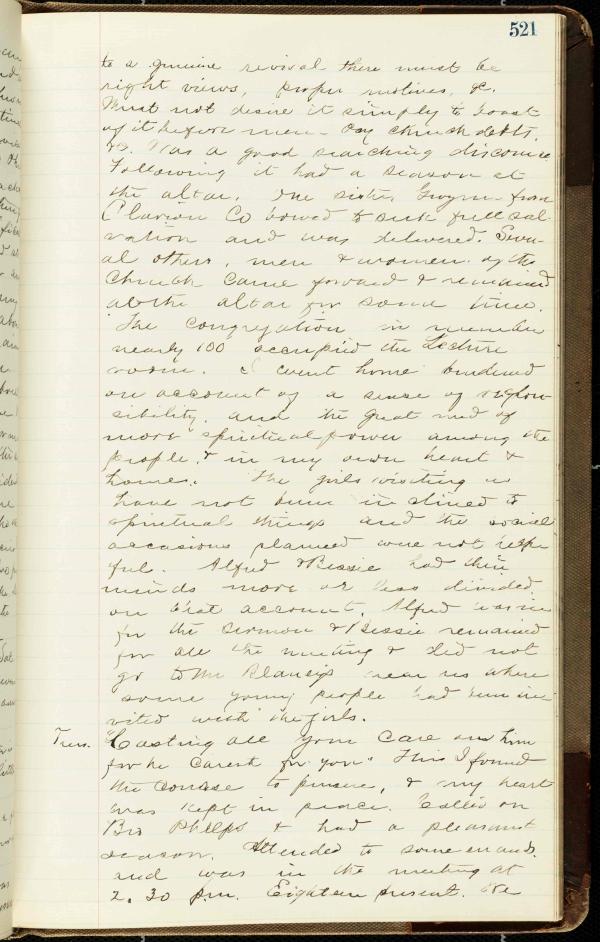 521
to a genuine revival there must be
right views, proper motives, &c.
Must not desire it simply to boast
of it before men - pay church debts,
&c. Was a good searching discourse
Following it had a season at
the altar. One sister, Gwynn from
Clarion Co bowed to seek full sal-
vation and was delivered. Sever-
al others, men & women of the
Church came forward & remained
at the altar for some time.
The congregation in number
nearly 100 occupied the Lecture
room. I went home burdened
on account of a sense of respon-
sibility, and the great need of
more spiritual power among the
people, & in my own heart &
homes. The girls visiting us
have not been inclined to
spiritual things and the social
occasions planned were not help-
ful. Alfred & Bessie had their
minds more or less divided
on that account. Alfred was in
for the sermon & Bessie remained
for all the meeting & did not
go to Mr near us where
some young people had been in-
vited with the girls.
Tues. "Casting all your care on him
for he careth for you" This I found
the course to pursue, & my heart
was kept in peace. Called on
Bro Phelps & had a pleasant
season. Attended to some errands.
and was in the meeting at
2.30 p.m. Eighteen present. We